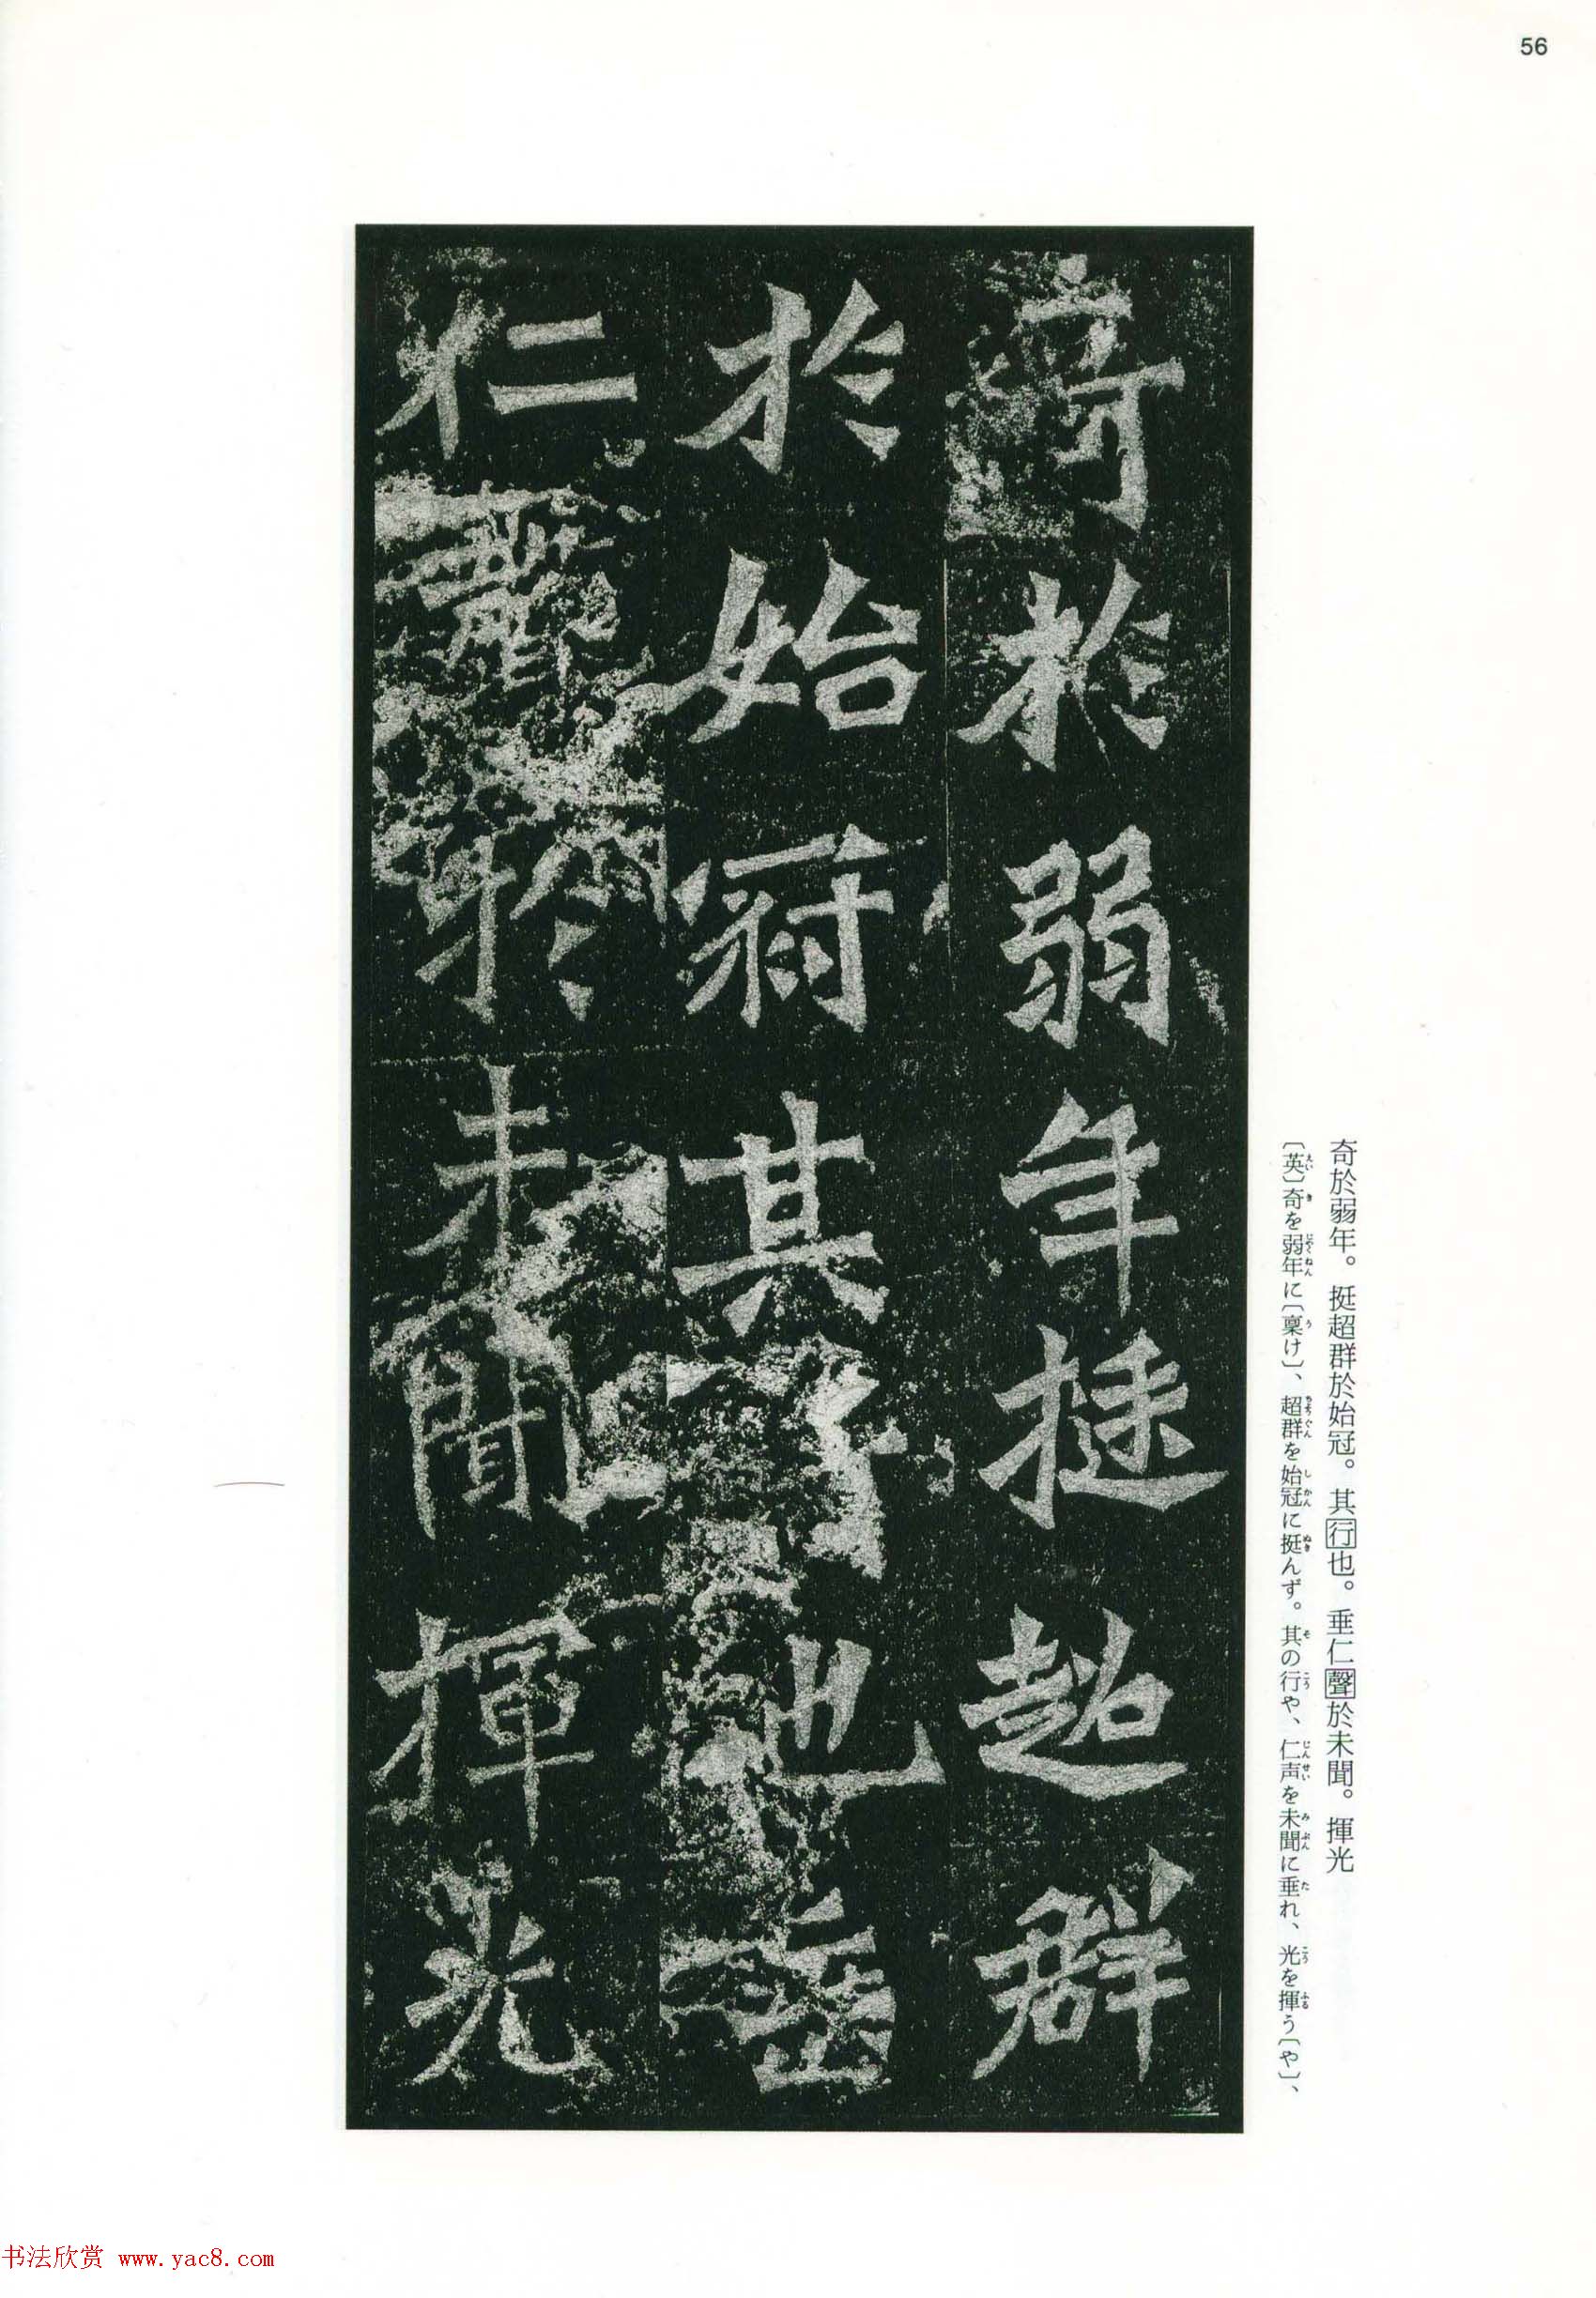 56
奇於弱年挺超群
於始冠其行也垂
仁聲於未聞揮光
奇於弱年。挺超群於始冠。其行也。垂仁聲於未聞。揮光
〔英〕奇を弱年に〔稟け〕、超群を始冠に挺んず。其の行や、仁声を未聞に垂れ、光を揮う〔や〕、
书法欣赏 www.yac8.com